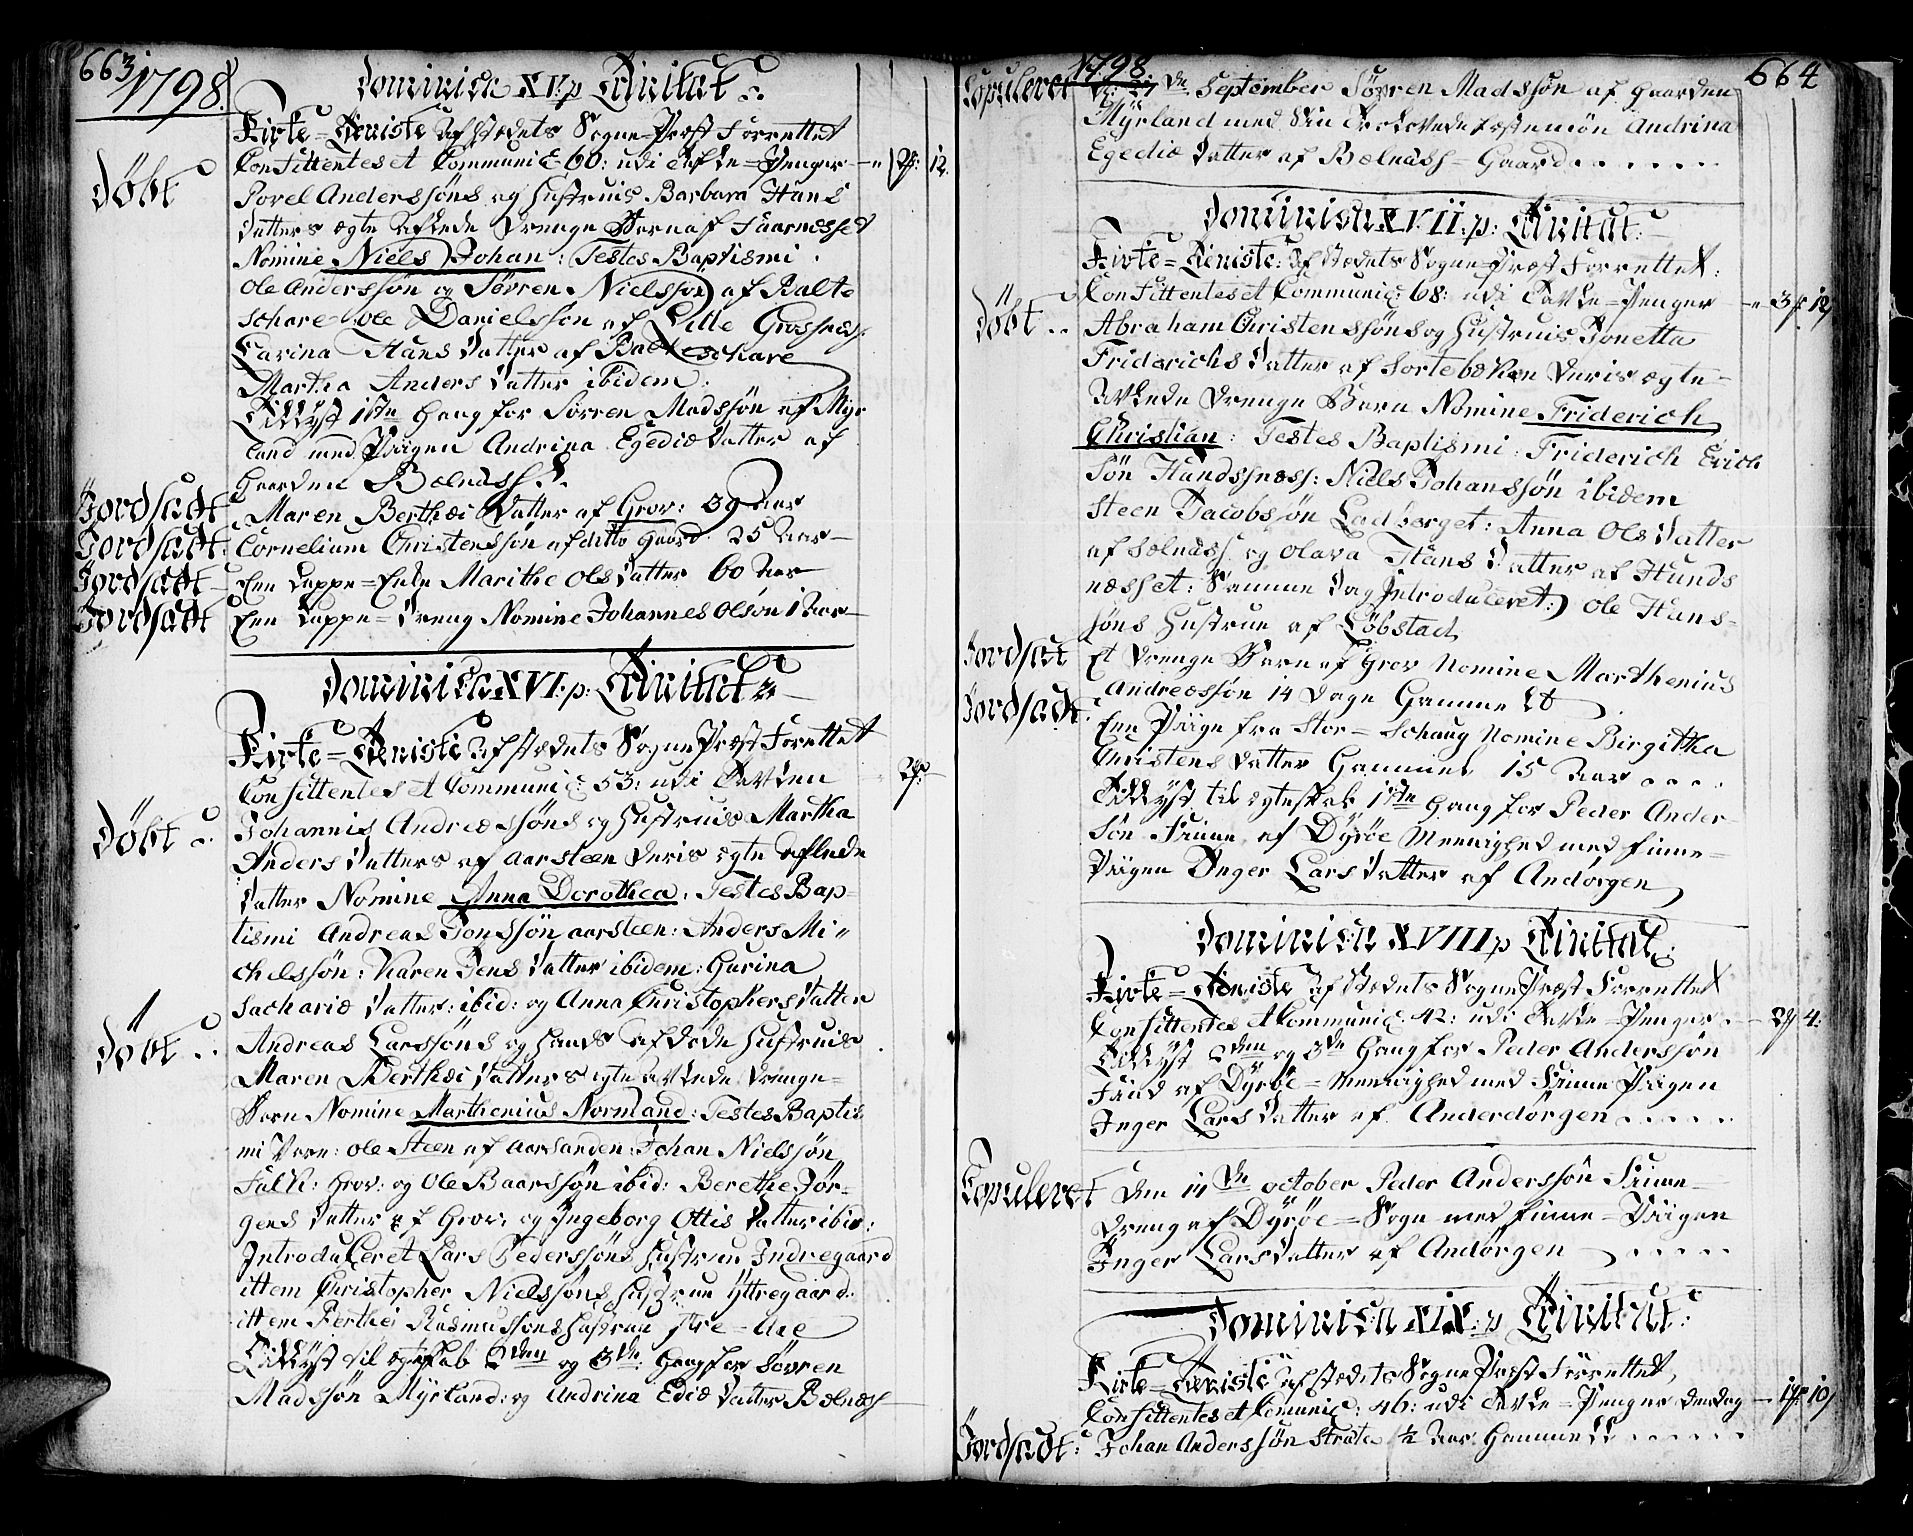 663
1798.
Dominica XV: p Trinitat:
Kirke=Tieniste Af Stedets Sogne=Præst Forrettet
Døbt
Confittentes et Communic: 60: udi Tavle=Penger — 2 12.
Povel Anderssøns og Hustrues Barbara Hans
Datters ægte Aflede Drenge Barn af Faarnesset
Nomine Niels Johan: Testes Baptismi:
Ole Anderssøn og Søvren Nielssøn af Balte
schare. Ole Danielssøn af Lille Grosnæs.
Carina Hans Datter af Balteschare
Martha Anders Datter ibidem.
Tillyst 1ste Gang for Sørren Madssøn af Myr
land med Piigen Andrina Egediæ Datter af
Gaarden Bælnæss.
Jordsadt Maren Berthæi Datter af Grov: 39 Aar
Jordsadt Cornelium Christenssøn af ditto Gaard 25 Aar —
Jordsadt — Een Lappe=Enke Marithe Ols Datter 60 Aar —
Jordsadt Een Lappe=Dreng Nomine Johannes Olsøn 1 Aar —
Dominica XVI: p: Trinitat:
Kirke=Tieniste Af Stedets Sogne Præst Forettet
Confittentes et Communic: 53: udi Tavlen 2
Døbt Johannis Andreæssøns og Hustrues Martha
Anders Datters af Aarsteen deris ægte aflede
Datter Nomine Anna Dorothea: Testes Bap-
tismi Andreas Tonssøn Aarsteen: Anders Mi=
chelssøn: Karen Jens Datter ibidem: Gurina
Sachariæ Datter: ibid: og Anna Christophers Datter
Døbt Andreas Larssøns og Hands Afdøde Hustrues
Maren Berthæi Datters ægte Avlede Drenge=
Barn Nomine Marthenius Normand: Testes Baptis
mi Vare: Ole Steen af Aarsanden: Johan Nielssøn
Falk: Grov: og Ole Baarssøn ibid: Berethe Jør-
gens Datter af Grov: og Ingeborg Ottis Datter ibid:
Introduceret Lars Pederssøns Hustrue Indregaard
ittem Christopher Nielssøns Hustrue Yttregaard.
ittem Berthei Rasmussøns Hustrue
Tillyst til ægteskab 2den og 3de: Gang for Sövren
Madssøn Myrland: og Andrina Ediæ Datter Bælnæs
664
1798
Copuleret d: 27de September Sövren Madssøn af Gaarden
Myrland med Sin Trolovede Fæstemøn Andrina
Egediæ Datter af Bælnæss=Gaard . . . . . .
Dominica XVII: p: Trinitat:
Kirke=Tieniste: Af Stedets Sogne=Præst Forrettet:
Confittentes et Communic: 68: udi Tavle=Penger — 3 12
Døbt . . Abraham Christenssøns og Hustrues Jonetta
Friderichs Datter af Sortebeken deris ægte=
Avlede Drenge Barn Nomine Friderich
Christian: Testes Baptismi: Friderich Erich
Søn Hundssnæss: Niels Johanssøn ibidem
Steen Jacobsøn Ladberget: Anna Ols Datter
af Sælnæss. og Olava Hans Datter af Hunds
næsset: Samme dag Introduceret: Ole Hans-
søns Hustrue af Løbstad
Jordsat Et Drenge Barn af Grov Nomine Marthenius
Andreæssøn 14 Dage Gammelt
Jordsadt Een Piige fra Stor=Schaug Nomine Birgitha
Christens Datter Gammel 15 Aar . . . .
Tillyst til ægteskab 1ste Gang for Peder Ander-
søn Finne af Dyrøe Menighed med Finne=
Piigen Inger Lars Datter af Andørgen
Dominica XVIII p Trinitat:
Kirke=Tieniste Af Stedets Sogne Præst Forrettet
Confittentes et Communic: 42: udi Tavle=Penger — 2 4:
Tillyst 2den og 3de Gang for Peder Anderssøn
Find af Dyrøe=Menighed med Finne Piigen
Inger Lars Datter af Anderdørgen . . . . .
Copuleret Den 14de October Peder Anderssøn Finne-
Dreng af Dyrøe=Sogn med Finne=Piigen
Inger Lars Datter af Andørgen . . . . .
Dominica XIX: p Trinitat:
Kirke=Tieniste Af Stedets Sogne Præst Forrettet,
Confittentes et Comunic: 46: udi Tavle=Penger — 1 10
Jordsadt: Johan Anderssøn Strate 1/2 Aar Gammell . . . . . .